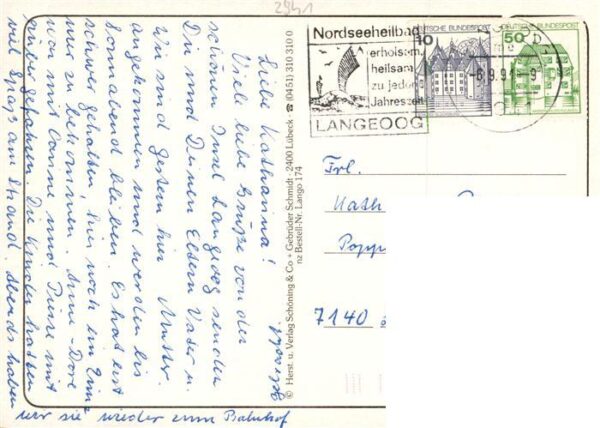 2941
Liebe Katharina!
Viele liebe Grüße von der
schönen Insel Langeoog senden
Dir und Deinen Eltern Vater u.
Mutter.
Wir sind gestern hier
angekommen und werden bis
Sonnabend bleiben. Es hat erst
schwer gehalten, hier noch ein Zim=
mer zu bekommen. Anne-Dore
war mit Sanne und Pierre mit
gefahren. Die Kinder hatten
viel Spaß am Strand. Abends haben
wir sie wieder zum Bahnhof
© Herst. u. Verlag Schöning & Co + Gebrüder Schmidt · 2400 Lübeck · ☎ (04 51) 310 310 0
nz Bestell-Nr. Lango 174
Nordseeheilbad
erholsam
heilsam
zu jeder
Jahreszeit
LANGEOOG
10 DEUTSCHE BUNDESPOST
50 DEUTSCHE BUNDESPOST
-6.9.91-9
Frl.
Kath
Popp
7140